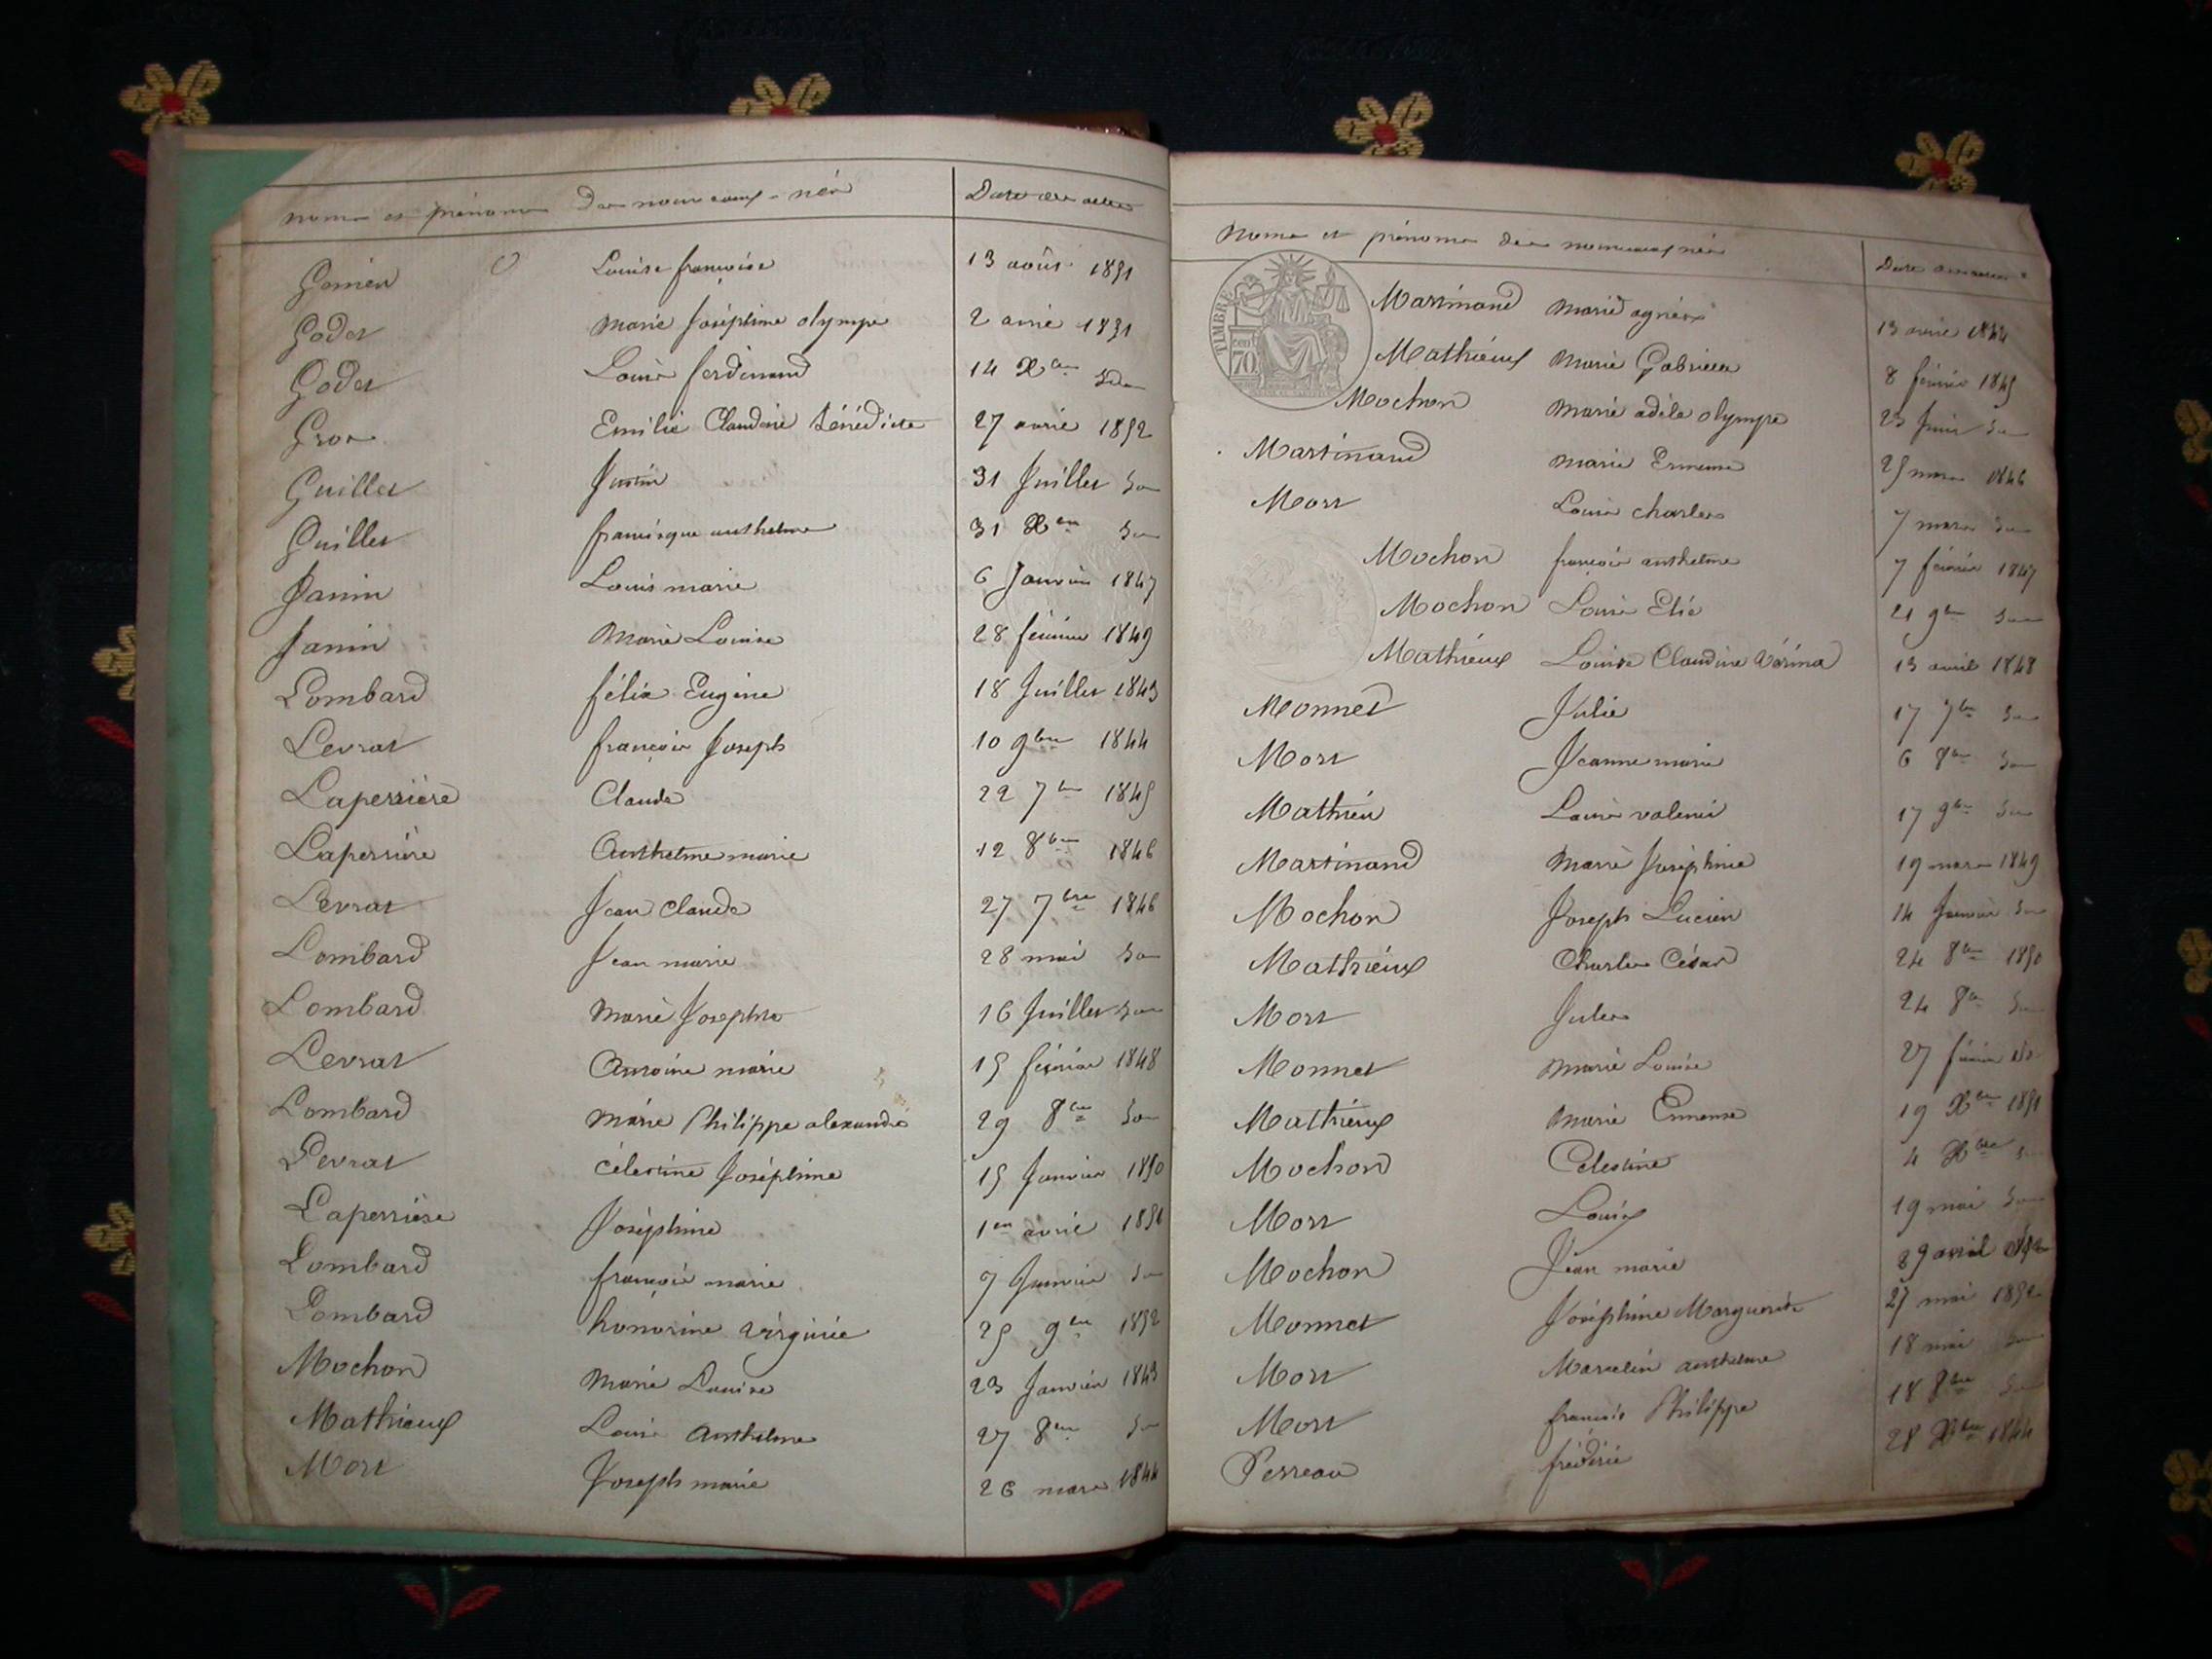 noms et prénoms des nouveaux-nés Date des actes
Genien Louise françoise 13 août 1851
Godet Marie Joséphine olympe 2 avril 1851
Godet Louis ferdinand 14 Xbre
Gros Emilie Claudine bénédicte 27 avril 1852
Guillet Justin 31 Juillet
Guillet francisque anthelme 31 Xbre
Janin Louis marie 6 Janvier 1847
Janin Marie Louise 28 février 1849
Lombard félix Eugène 18 Juillet 1843
Levrat françois Joseph 10 9bre 1844
Laperrière Claude 22 7bre 1845
Laperrière Anthelme marie 12 8bre 1846
Levrat Jean Claude 27 7bre 1846
Lombard Jean marie 28 mai
Lombard Marie Josephte 16 Juillet
Levrat Antoine marie 15 février 1848
Lombard Marie Philippe alexandre 29 8bre
Levrat Célestine Joséphine 15 Janvier 1850
Laperrière Joséphine 1er avril 1851
Lombard françois marie 7 Janvier
Lombard honorine virginie 25 9bre 1852
Mochon Marie Louise 23 Janvier 1843
Mathieux Louis Anthelme 27 8bre
Mort Joseph marie 26 mars 1844
Noms et prénoms des nouveaux nés Date des actes
TIMBRE
70
Martinand Marie agnès 13 avril 1844
Mathieux Marie Gabrielle 8 février 1845
Mochon Marie adèle olympe 23 Juin
Martinand Marie Ermense 25 mars 1846
Mort Louis charles 7 mars
Mochon françois anthelme 7 février 1847
Mochon Louis Elie 21 9bre
Mathieux Louise Claudine 13 avril 1848
Monnet Julie 17 7bre
Mort Jeanne marie 6 8bre
Mathieu Louis 17 9bre
Martinand Marie Joséphine 19 mars 1849
Mochon Joseph Lucien 14 Janvier
Mathieux Charles César 24 8bre 1850
Mort Jules 24 8bre
Monnet Marie Louise 27 février
Mathieux Marie Ermense 19 Xbre 1851
Mochon Célestine 4 Xbre
Mort Louis 19 mai
Mochon Jean marie 29 avril
Monnet Joséphine Marguerite 27 mai 1852
Mort Marcelin anthelme 18 mai
Mort françois Philippe 18 8bre
Perreau frédéric 28 Xbre 1844